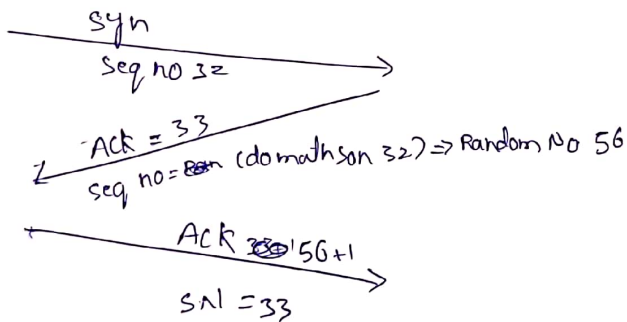 Syn
Seq no 32
Ack = 33
Seq no = (do maths on 32) => Random No 56
Ack 56+1
SN = 33